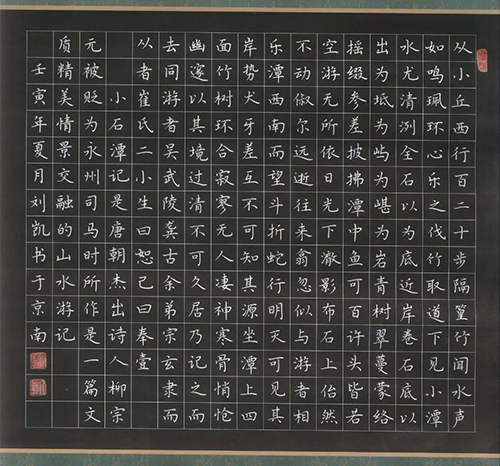 从小丘西行百二十步隔篁竹闻水声
如鸣珮环心乐之伐竹取道下见小潭
水尤清冽全石以为底近岸卷石底以
出为坻为屿为嵁为岩青树翠蔓蒙络
摇缀参差披拂潭中鱼可百许头皆若
空游无所依日光下澈影布石上佁然
不动俶尔远逝往来翕忽似与游者相
乐潭西南而望斗折蛇行明灭可见其
岸势犬牙差互不可知其源坐潭上四
面竹树环合寂寥无人凄神寒骨悄怆
幽邃以其境过清不可久居乃记之而
去同游者吴武陵龚古余弟宗玄隶而
从者崔氏二小生曰恕己曰奉壹
小石潭记是唐朝杰出诗人柳宗
元被贬为永州司马时所作是一篇文
质精美情景交融的山水游记
壬寅年夏月刘凯书于京南